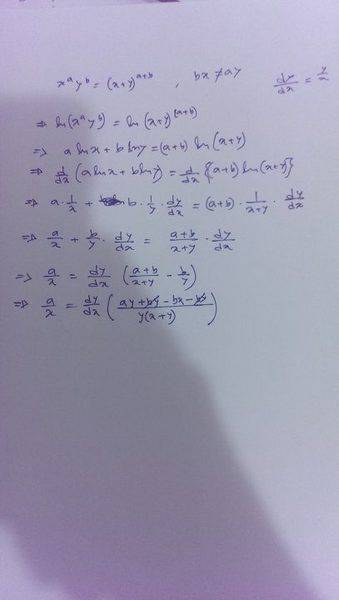 x^a y^b = (x+y)^{a+b} , bx ≠ ay dy/dx = y/x
⇒ ln(x^a y^b) = ln(x+y)^{(a+b)}
⇒ a ln x + b ln y = (a+b) ln(x+y)
⇒ d/dx (a ln x + b ln y) = d/dx {(a+b) ln(x+y)}
⇒ a · 1/x + b · 1/y · dy/dx = (a+b) · 1/(x+y) · dy/dx
⇒ a/x + b/y · dy/dx = (a+b)/(x+y) · dy/dx
⇒ a/x = dy/dx ((a+b)/(x+y) - b/y)
⇒ a/x = dy/dx ((ay + by - bx - by)/(y(x+y)))